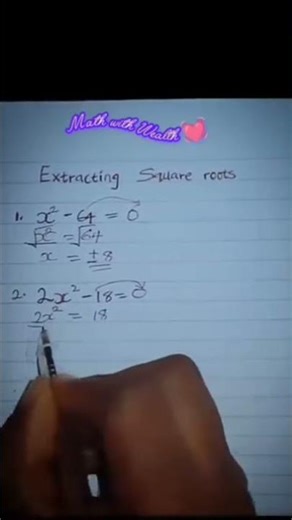 Math with Wealth
Extracting Square roots
1. x² - 64 = 0
√x² = √64
x = ±8
2. 2x² - 18 = 0
2x² = 18